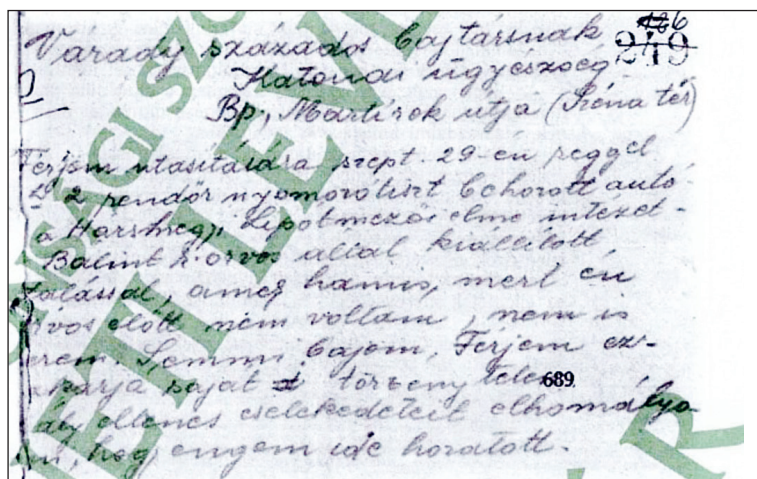 126
249
Várady százados bajtársnak
Katonai ügyészség
Bp., Mártirok útja (Széna tér)
Férjem utasitására szept. 29-én reggel
2 rendőr nyomozótiszt behozott autó-
a Hárshegyi Lipótmezői elme intézet-
Bálint dr. orvos által kiállitott
, ameg hamis, mert én
orvos előtt nem voltam, nem is
. Semmi bajom, Férjem ez-
akarja saját törvénytelen 689
ellenes cselekedeteit elhomályo-
ni, hogy engem ide hozatott.
ONSÁGI SZO
ETI LEV